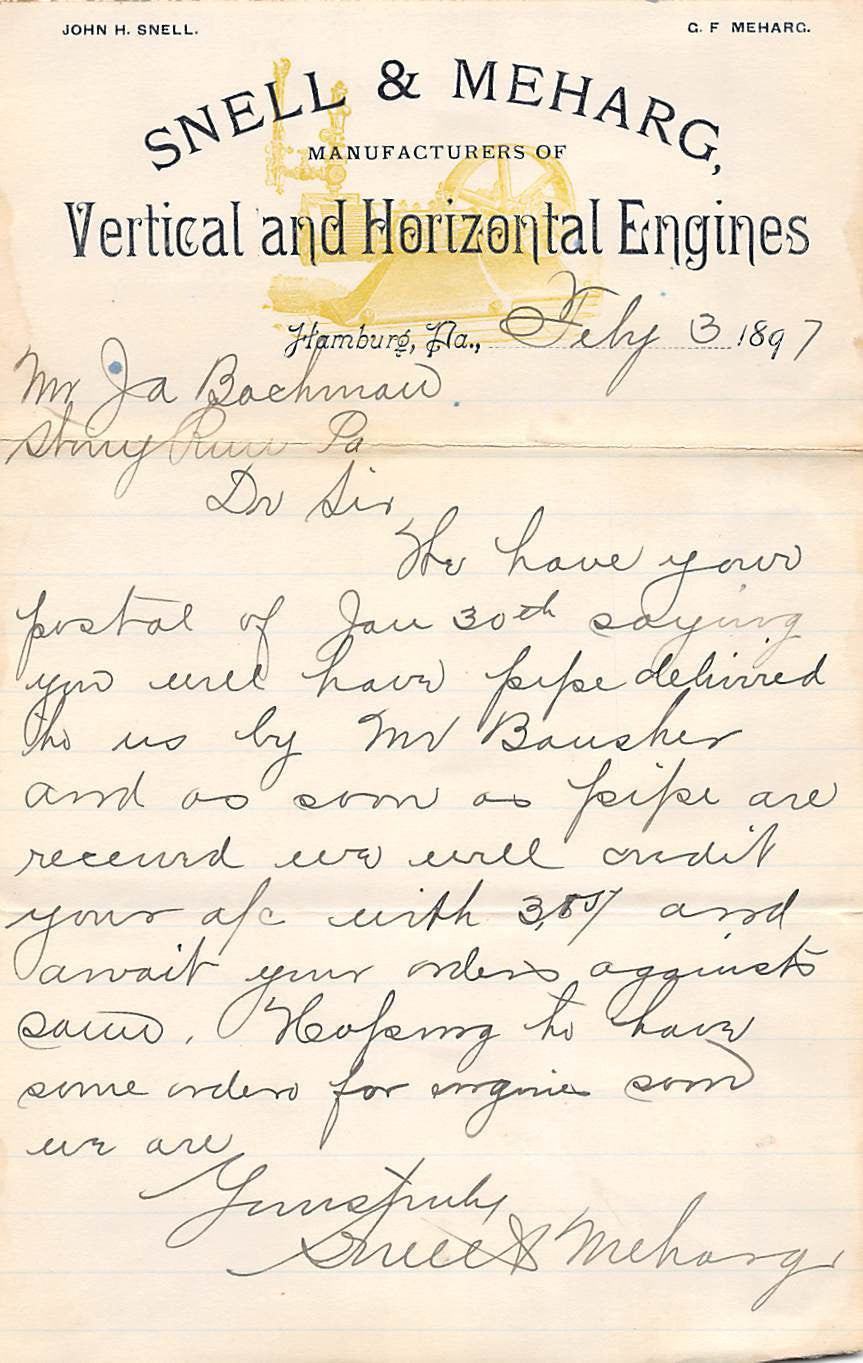 JOHN H. SNELL.
G. F MEHARG.
SNELL & MEHARG,
MANUFACTURERS OF
Vertical and Horizontal Engines
Hamburg, Pa., Feby 3 1897
Mr Ja Bachman
Stony Run Pa
Dr Sir
We have your
postal of Jan 30th saying
you will have pipe delivired
to us by Mr Bausher
and as soon as pipe are
received we will credit
your a/c with 3,85/ and
await your orders against
same. Hoping to have
some orders for engines soon
we are
Yours truly
Snell & Meharg